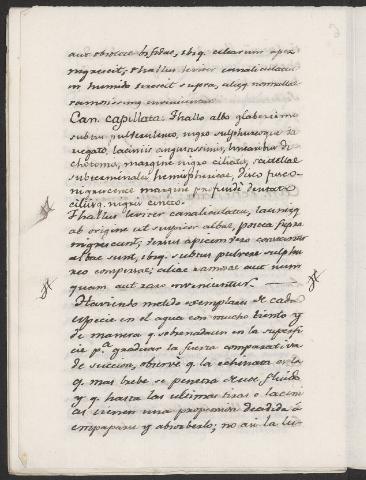 aut obsolete bifidae, ibiq. ciliarum apex
nigrescit, thallus leviter canaliculatus
in humido virescit supra, aliaq. nonnullae
ramosissimae inveniuntur.
Can. capillata: Thallo albo glaberrimo
subtus pulverulento, nigro sulphureoque va
riegato, laciniis angustissimis, lineatis di
chotomis, margine nigro ciliatis, scutellae
subterminales hemisphaericae, disco fusco
nigrescente margine profundi dentato
ciliisq. nigris cincto.
Thallus leviter canaliculatus, laciniaq
ab origine ut superior albae, postea supra
nigrescunt, versus apicem vero
albae sunt, ibiq. subtus pulvere sulphu
reo conspersae; ciliae ramosae aut num
quam aut raro inveniuntur.
Haviendo metido exemplares de cada
especie en el agua con mucho tiento y
de manera q. sobrenadasen en la superfi
cie pa. graduar la fuerza comparativa
de succion, observé q. la echinata es la
q. mas bebe se penetra de ese fluido
y q. hasta las ultimas tiras o lacini
as tienen una propension decidida á
empaparse y absorberlo; no asi la leu-